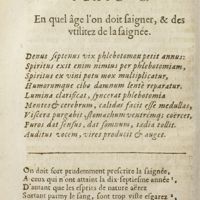 En quel âge l'on doit saigner, & des
vtilitez de la saignée.
Denus septenus vix phlebotomon petit annus:
Spiritus exit enim nimius per phlebotomiam,
Spiritus ex vini potu mox multiplicatur,
Humorumque cibo damnum lentè reparatur.
Lumina clarificat, syncerat phlebotomia
Mentes & cerebrum, calidas facit esse medullas,
Viscera purgabit, stomachum ventremque coërcet,
Puros dat sensus, dat somnum, tædia tollit,
Auditus, voces, vires producit & auget.
On doit fort prudemment prescrire la saignée,
A ceux qui n'ont attaint la dix septiéme année
D'autant que les esprits de nature aërez
Sortant parmy le sang, sont trop viste esgarez